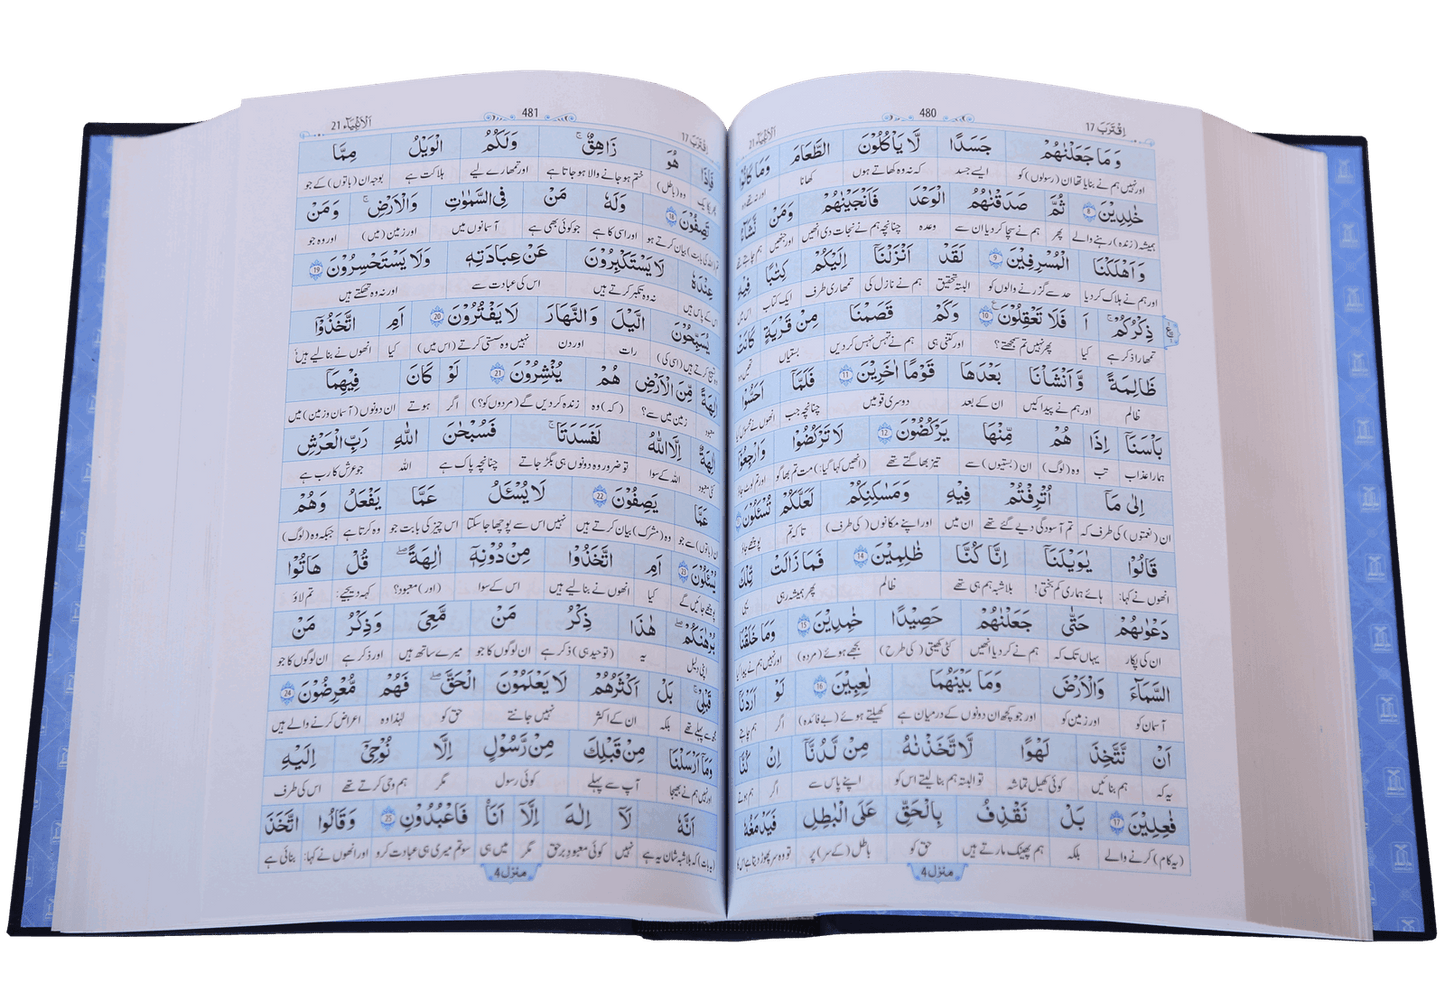 اِقْتَرَبَ 17
480
الْاَنْۢبِيَآء 21
وَمَا جَعَلْنٰهُمْ جَسَدًا لَّا يَاْكُلُوْنَ الطَّعَامَ وَمَا كَانُوْا
اور نہیں ہم نے بنایا تھا ان (رسولوں) کو ایسے جسد کہ نہ وہ کھاتے ہوں کھانا اور نہ تھے وہ
خٰلِدِيْنَ 8 ثُمَّ صَدَقْنٰهُمُ الْوَعْدَ فَاَنْجَيْنٰهُمْ وَمَنْ نَّشَآءُ
ہمیشہ (زندہ) رہنے والے پھر ہم نے سچا کر دیا ان سے وعدہ چنانچہ ہم نے نجات دی انھیں اور جنھیں ہم چاہتے تھے
وَاَهْلَكْنَا الْمُسْرِفِيْنَ 9 لَقَدْ اَنْزَلْنَاۤ اِلَيْكُمْ كِتٰبًا فِيْهِ
اور ہم نے ہلاک کر دیا حد سے گزرنے والوں کو البتہ تحقیق ہم نے نازل کی تمھاری طرف ایک کتاب اس میں
ذِكْرُكُمْ ؕ اَ فَلَا تَعْقِلُوْنَ 10 وَكَمْ قَصَمْنَا مِنْ قَرْيَةٍ كَانَتْ
تمھارا ذکر ہے کیا پھر نہیں تم سمجھتے؟ اور کتنی ہی ہم نے تہس نہس کر دیں بستیاں
ظَالِمَةً وَّاَنْشَاْنَا بَعْدَهَا قَوْمًا اٰخَرِيْنَ 11 فَلَمَّاۤ اَحَسُّوْا
ظالم اور ہم نے پیدا کیں ان کے بعد دوسری قومیں چنانچہ جب انھوں نے محسوس کیا
بَاْسَنَاۤ اِذَا هُمْ مِّنْهَا يَرْكُضُوْنَ 12 لَا تَرْكُضُوْا وَارْجِعُوْۤا
ہمارا عذاب تب وہ (لوگ) ان (بستیوں) سے تیز بھاگتے تھے (انھیں کہا گیا:) مت تم بھاگو اور تم لوٹ جاؤ
اِلٰى مَاۤ اُتْرِفْتُمْ فِيْهِ وَمَسٰكِنِكُمْ لَعَلَّكُمْ تُسْـَٔلُوْنَ
ان (نعمتوں) کی طرف کہ تم آسودگی دیے گئے تھے ان میں اور اپنے مکانوں (کی طرف) تاکہ تم پوچھے جاؤ
قَالُوْا يٰوَيْلَنَاۤ اِنَّا كُنَّا ظٰلِمِيْنَ 14 فَمَا زَالَتْ تِّلْكَ
انھوں نے کہا: ہائے ہماری کم بختی! بلاشبہ ہم ہی تھے ظالم پھر ہمیشہ رہی یہی
دَعْوٰىهُمْ حَتّٰى جَعَلْنٰهُمْ حَصِيْدًا خٰمِدِيْنَ 15 وَمَا خَلَقْنَا
ان کی پکار یہاں تک کہ ہم نے کر دیا انھیں کٹی کھیتی (کی طرح) بجھے ہوئے (مردہ) اور نہیں ہم نے پیدا کیا
السَّمَآءَ وَالْاَرْضَ وَمَا بَيْنَهُمَا لٰعِبِيْنَ 16 لَوْ اَرَدْنَاۤ
آسمان کو اور زمین کو اور جو کچھ ان دونوں کے درمیان ہے کھیلتے ہوئے (بے فائدہ) اگر ہم چاہتے
اَنْ نَّتَّخِذَ لَهْوًا لَّاتَّخَذْنٰهُ مِنْ لَّدُنَّاۤ اِنْ كُنَّا
یہ کہ ہم بنائیں کوئی کھیل تماشہ تو البتہ ہم بنا لیتے اس کو اپنے پاس سے اگر ہم ہوتے
فٰعِلِيْنَ 17 بَلْ نَقْذِفُ بِالْحَقِّ عَلَى الْبَاطِلِ فَيَدْمَغُهٗ
(یہ کام) کرنے والے بلکہ ہم پھینک مارتے ہیں حق کو باطل (کے سر) پر تو وہ سر پھوڑ دیتا ہے اس کا
منزل 4
اِقْتَرَبَ 17
481
الْاَنْۢبِيَآء 21
فَاِذَا هُوَ زَاهِقٌ ؕ وَلَكُمُ الْوَيْلُ مِمَّا
وہ (باطل) ختم ہو جانے والا ہو جاتا ہے اور تمھارے لیے ہلاکت ہے بوجہ ان (باتوں) کے جو
تَصِفُوْنَ 18 وَلَهٗ مَنْ فِى السَّمٰوٰتِ وَالْاَرْضِ ؕ وَمَنْ
بیان کرتے ہو اور اسی کا ہے جو کوئی بھی ہے آسمانوں میں اور زمین (میں) اور وہ جو
عِنْدَهٗ لَا يَسْتَكْبِرُوْنَ عَنْ عِبَادَتِهٖ وَلَا يَسْتَحْسِرُوْنَ 19
اس کے پاس ہیں نہ وہ تکبر کرتے ہیں اس کی عبادت سے اور نہ وہ تھکتے ہیں
يُسَبِّحُوْنَ الَّيْلَ وَالنَّهَارَ لَا يَفْتُرُوْنَ 20 اَمِ اتَّخَذُوْۤا
تسبیح کرتے ہیں (اس کی) رات اور دن نہیں وہ سستی کرتے (اس میں) کیا انھوں نے بنا لیے ہیں
اٰلِهَةً مِّنَ الْاَرْضِ هُمْ يُنْشِرُوْنَ 21 لَوْ كَانَ فِيْهِمَاۤ
معبود زمین میں سے؟ (کہ) وہ زندہ کر دیں گے (مردوں کو؟) اگر ہوتے ان دونوں (آسمان و زمین) میں
اٰلِهَةٌ اِلَّا اللّٰهُ لَفَسَدَتَا ۚ فَسُبْحٰنَ اللّٰهِ رَبِّ الْعَرْشِ
کئی معبود اللہ کے سوا تو ضرور وہ دونوں ہی بگڑ جاتے چنانچہ پاک ہے اللہ جو عرش کا رب ہے
عَمَّا يَصِفُوْنَ 22 لَا يُسْـَٔلُ عَمَّا يَفْعَلُ وَهُمْ
ان (باتوں) سے جو وہ (مشرک) بیان کرتے ہیں نہیں اس سے پوچھا جا سکتا اس چیز کی بابت جو وہ کرتا ہے جبکہ وہ (لوگ)
يُسْـَٔلُوْنَ 23 اَمِ اتَّخَذُوْا مِنْ دُوْنِهٖۤ اٰلِهَةً ؕ قُلْ هَاتُوْا
پوچھے جائیں گے کیا انھوں نے بنا لیے ہیں اس کے سوا (اور) معبود؟ کہہ دیجیے: تم لاؤ
بُرْهَانَكُمْ ۚ هٰذَا ذِكْرُ مَنْ مَّعِىَ وَذِكْرُ مَنْ
اپنی دلیل یہ (توحید ہی) ذکر ہے ان لوگوں کا جو میرے ساتھ ہیں اور ذکر ہے ان لوگوں کا جو
قَبْلِىْ ؕ بَلْ اَكْثَرُهُمْ لَا يَعْلَمُوْنَ الْحَقَّ فَهُمْ مُّعْرِضُوْنَ 24
مجھ سے پہلے تھے بلکہ ان کے اکثر نہیں جانتے حق کو لہٰذا وہ اعراض کرنے والے ہیں
وَمَاۤ اَرْسَلْنَا مِنْ قَبْلِكَ مِنْ رَّسُوْلٍ اِلَّا نُوْحِىْۤ اِلَيْهِ
اور نہیں ہم نے بھیجا آپ سے پہلے کوئی رسول مگر ہم وحی کرتے تھے اس کی طرف
اَنَّهٗ لَاۤ اِلٰهَ اِلَّاۤ اَنَا۠ فَاعْبُدُوْنِ 25 وَقَالُوا اتَّخَذَ
کہ بلاشبہ شان یہ ہے نہیں کوئی معبود برحق مگر میں ہی سو تم میری ہی عبادت کرو اور انھوں نے کہا: بنائی ہے
منزل 4